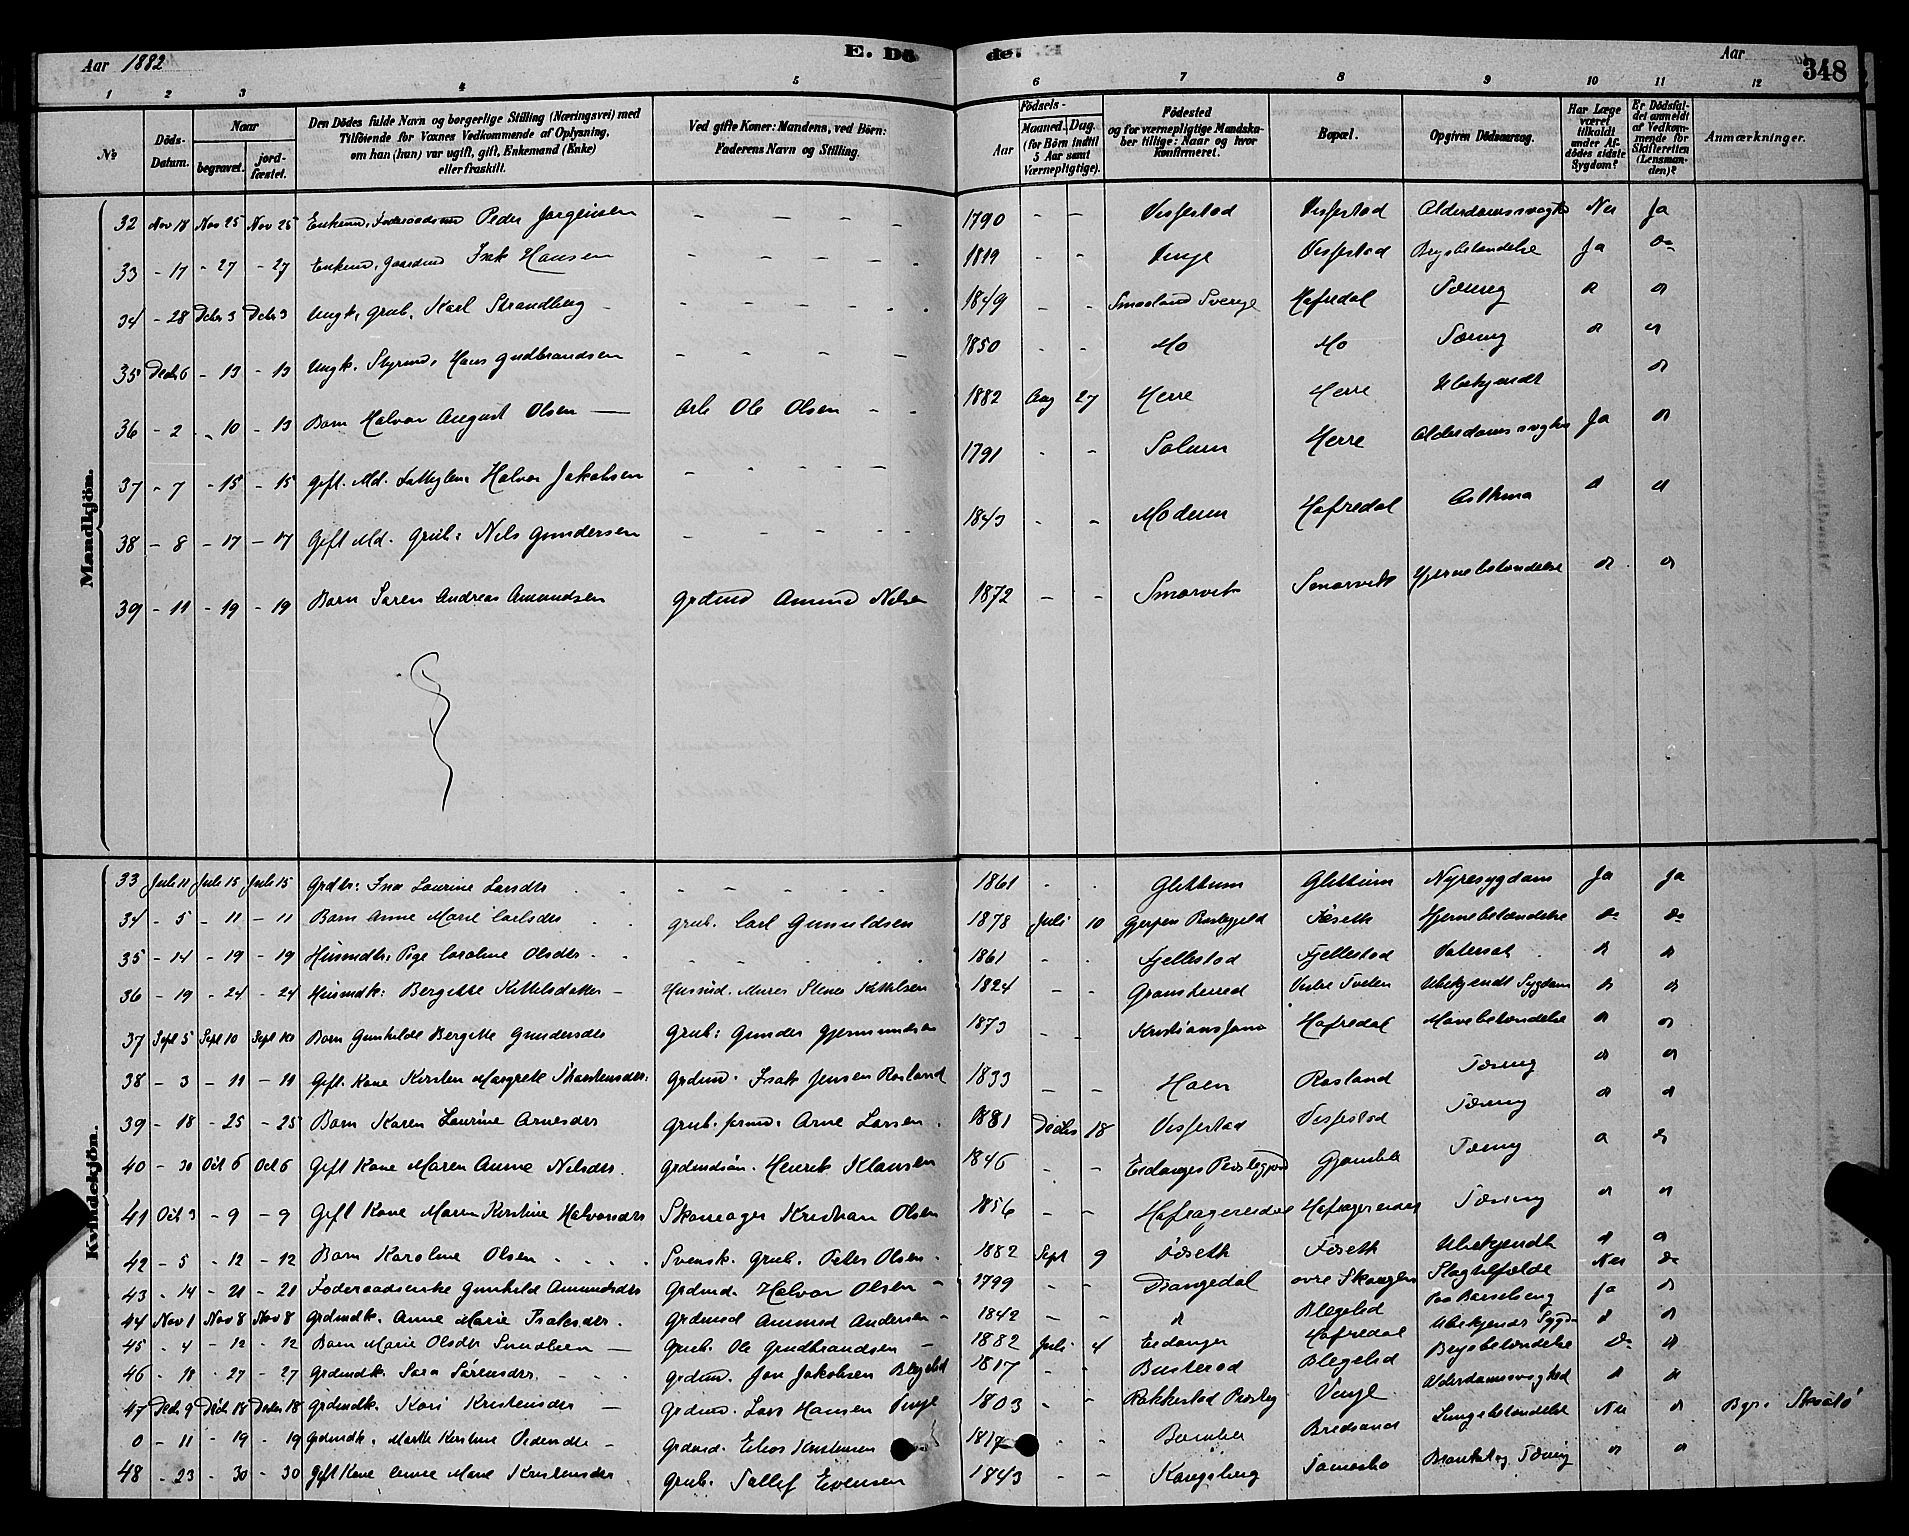 Aar 1882 E. Dö de. Aar 348
1 2 3 4 5 6 7 8 9 10 11 12
No Döds-Datum. Naar begravet. jordfæstet. Den Dödes fulde Navn og borgerlige Stilling (Næringsvei) med Tilföiende for Voxnes Vedkommende af Oplysning, om han (hun) var ugift, gift, Enkemand (Enke) eller fraskilt. Ved gifte Koner: Mandens, ved Börn: Faderens Navn og Stilling. Födsels- Aar Maaned. Dag. (for Börn indtil 5 Aar samt Værnepligtige). Födested og for værnepligtige Mandskaber tillige: Naar og hvor konfirmeret. Bopæl. Opgiven Dödsaarsag. Har Læge været tilkaldt under Afdödes sidste Sygdom? Er Dödsfaldet anmeldt af Vedkommende for Skifteretten (Lensmanden)? Anmærkninger.
Mandkjön.
32 Nov 18 Nov 25 Nov 25 Enkemd. Foderaadsmd Peder Jørgensen - - - - 1790 - - Visfestad Visfestad Alderdomssvaghed Nei Ja
33 - 17 - 27 - 27 Enkemd. Gaardmd Isak Hansen - - - - 1819 - - Vinje Visfestad Brystbetændelse Ja Do
34 - 28 Decbr 3 Decbr 3 Ungk. Grub. Karl Strandberg - - - - 1849 - - Smaaland Sverige Hafredal Tæring
35 Decbr 6 - 13 - 13 Ungk. Styrmd. Hans Gudbrandsen - - - - 1850 - - Mo Mo Tæring
36 - 2 - 10 - 13 Barn Halvor August Olsen Arb Ole Olsen - - 1882 Aug 27 Herre Herre Ubekjendt
37 - 7 - 15 - 15 Gift. Md. Fattiglem Halvor Jakobsen - - - - 1791 - - Solum Herre Alderdomssvaghed Ja
38 - 8 - 17 - 17 Gift Md. Grub: Nils Gundersen - - - - 1843 - - Modum Hafredal Asthma
39 - 11 - 19 - 19 Barn Søren Andreas Amundsen Grdmd Amund Nilsen 1872 - - Smørvik Smørvik Hjernebetændelse
Kvindekjön.
33 Juli 11 Juli 15 Juli 15 Grdtr: Ina Laurine Larsdtr - - - - 1861 - - Glittum Glittum Nyresygdom Ja Ja
34 - 5 - 11 - 11 Barn Anne Marie Carlsdtr Grub. Carl Gunuldsen 1878 Juli 10 Gjerpen Præstegjeld Føseth Hjernebetændelse Do Do
35 - 14 - 19 - 19 Husmdtr: Pige Caroline Olsdtr - - - - 1861 - - Fjellestad Fjellestad Vatersot
36 - 19 - 24 - 24 Husmdk: Bergitte Kittelsdatter - Husmd. Murer Stener Kittilsen 1824 - - Gransherred Vestre Tveten Ubekjendt Sygdom
37 Sept 5 Sept 10 Sept 10 Barn Gunhilde Bergitte Gundersdtr Grub: Gunder Gjermundsen 1873 - - Kristiansfana Hafredal Mavebetændelse
38 - 3 - 11 - 11 Gift Kone Kirsten Margrete Thorstensdtr. Grdmd. Isak Jensen Rosland 1833 - - Hoen Rosland Tæring
39 - 18 - 25 - 25 Barn Karen Laurine Arnesdtr Grub. formd. Arne Larsen 1881 Decbr 18 Visfestad Visfestad Tæring
40 - 30 Oct 6 Oct 6 Gift Kone Maren Anne Nilsdtr. Grdmdsøn. Henrik Klausen 1846 - - Eidanger Prestegjeld Gjømle Tæring
41 Oct 3 - 9 - 9 Gift Kone Maren Kirstine Halvorsdtr Skomager Kristian Olsen 1856 - - Hafsagereiet Hafsagereiet Tæring
42 - 5 - 12 - 12 Barn Karoline Olsen Svensk. Grub. Peter Olsen 1882 Sept 9 Føseth Føseth Ubekjendt
43 - 14 - 21 - 21 Foderaadsenke Gunhild Amundsdtr Grdmd. Halvor Olsen - 1799 - - Drangedal øvre Skouglen Slagtilfælde Nei Do
44 Nov 1 Nov 8 Nov 8 Grdmdk. Anne Marie Isaksdtr. Grdmd Amund Andersen 1842 - - Blegelid Paa Barselseng Ja
45 - 4 - 12 - 12 Barn Marie Olsdtr Grub. Ole Gudbrandsen 1882 Juli 4 Eidanger Hafredal Ubekjendt Sygd-
46 - 18 - 27 - 27 Grdmdk. Sara Sørensdtr Grdmd. Jon Jakobsen Blegelid 1817 - - Busterød Blegelid Brystbetændelse Do
47 Decbr 9 Decbr 18 Decbr 18 Grdmdk. Kari Kristensdtr Grdmd. Lars Hansen Vinje 1803 - - Rakkestad Prestg Vinje Alderdomssvaghed
0 - 11 - 19 - 19 Grdmdk. Marthe Kirstine Pedersdtr - Grdmd. Elias Kristensen 1817 - - Bamble Bredsand Lungebetændelse Nei Bgr. i Skaatø
48 - 23 - 30 - 30 Gift Kone Anne Marie Kristensdtr Grub. Tallef Evensen 1843 - - Kongsberg Bronkit og Tæring